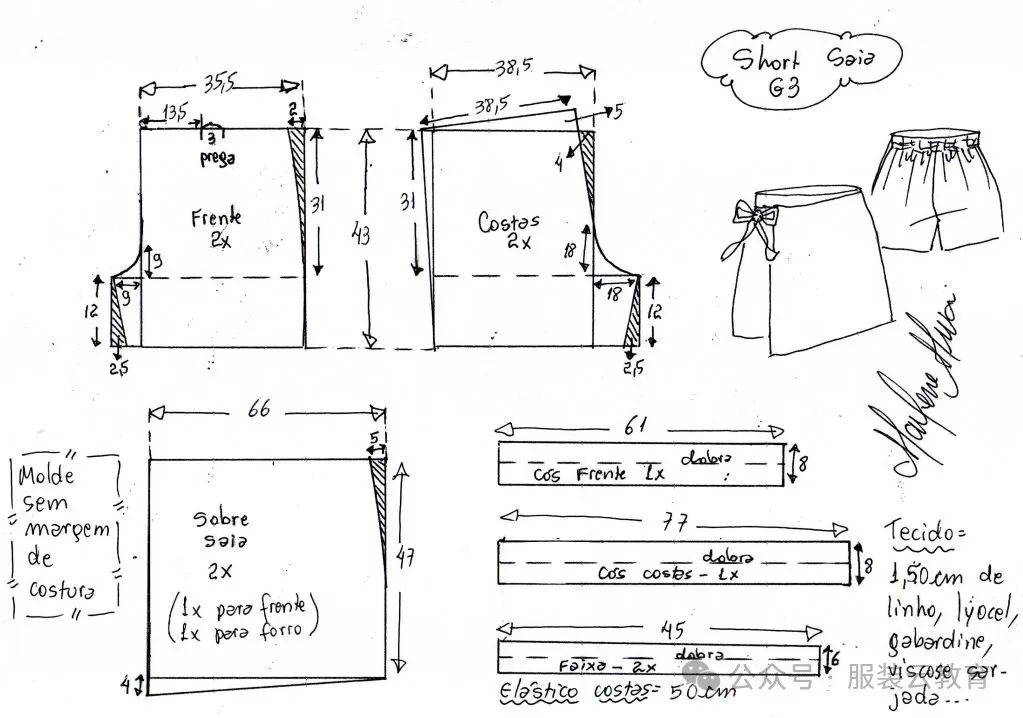 Short Saia
G3
35,5
13,5
3
prega
2
Frente
2x
31
9
9
12
2,5
43
38,5
38,5
5
4
31
Costas
2x
18
18
12
2,5
66
5
Sobre
saia
2x
(1x para frente
1x para forro)
47
4
Molde
sem
margem
de
costura
61
dobra
Cós Frente 1x
8
77
dobra
Cós costas - 1x
8
45
dobra
Faixa - 2x
6
Elástico costas = 50cm
Tecido=
1,50cm de
linho, lyocel,
gabardine,
viscose sar-
jada...
公众号：服装云教育